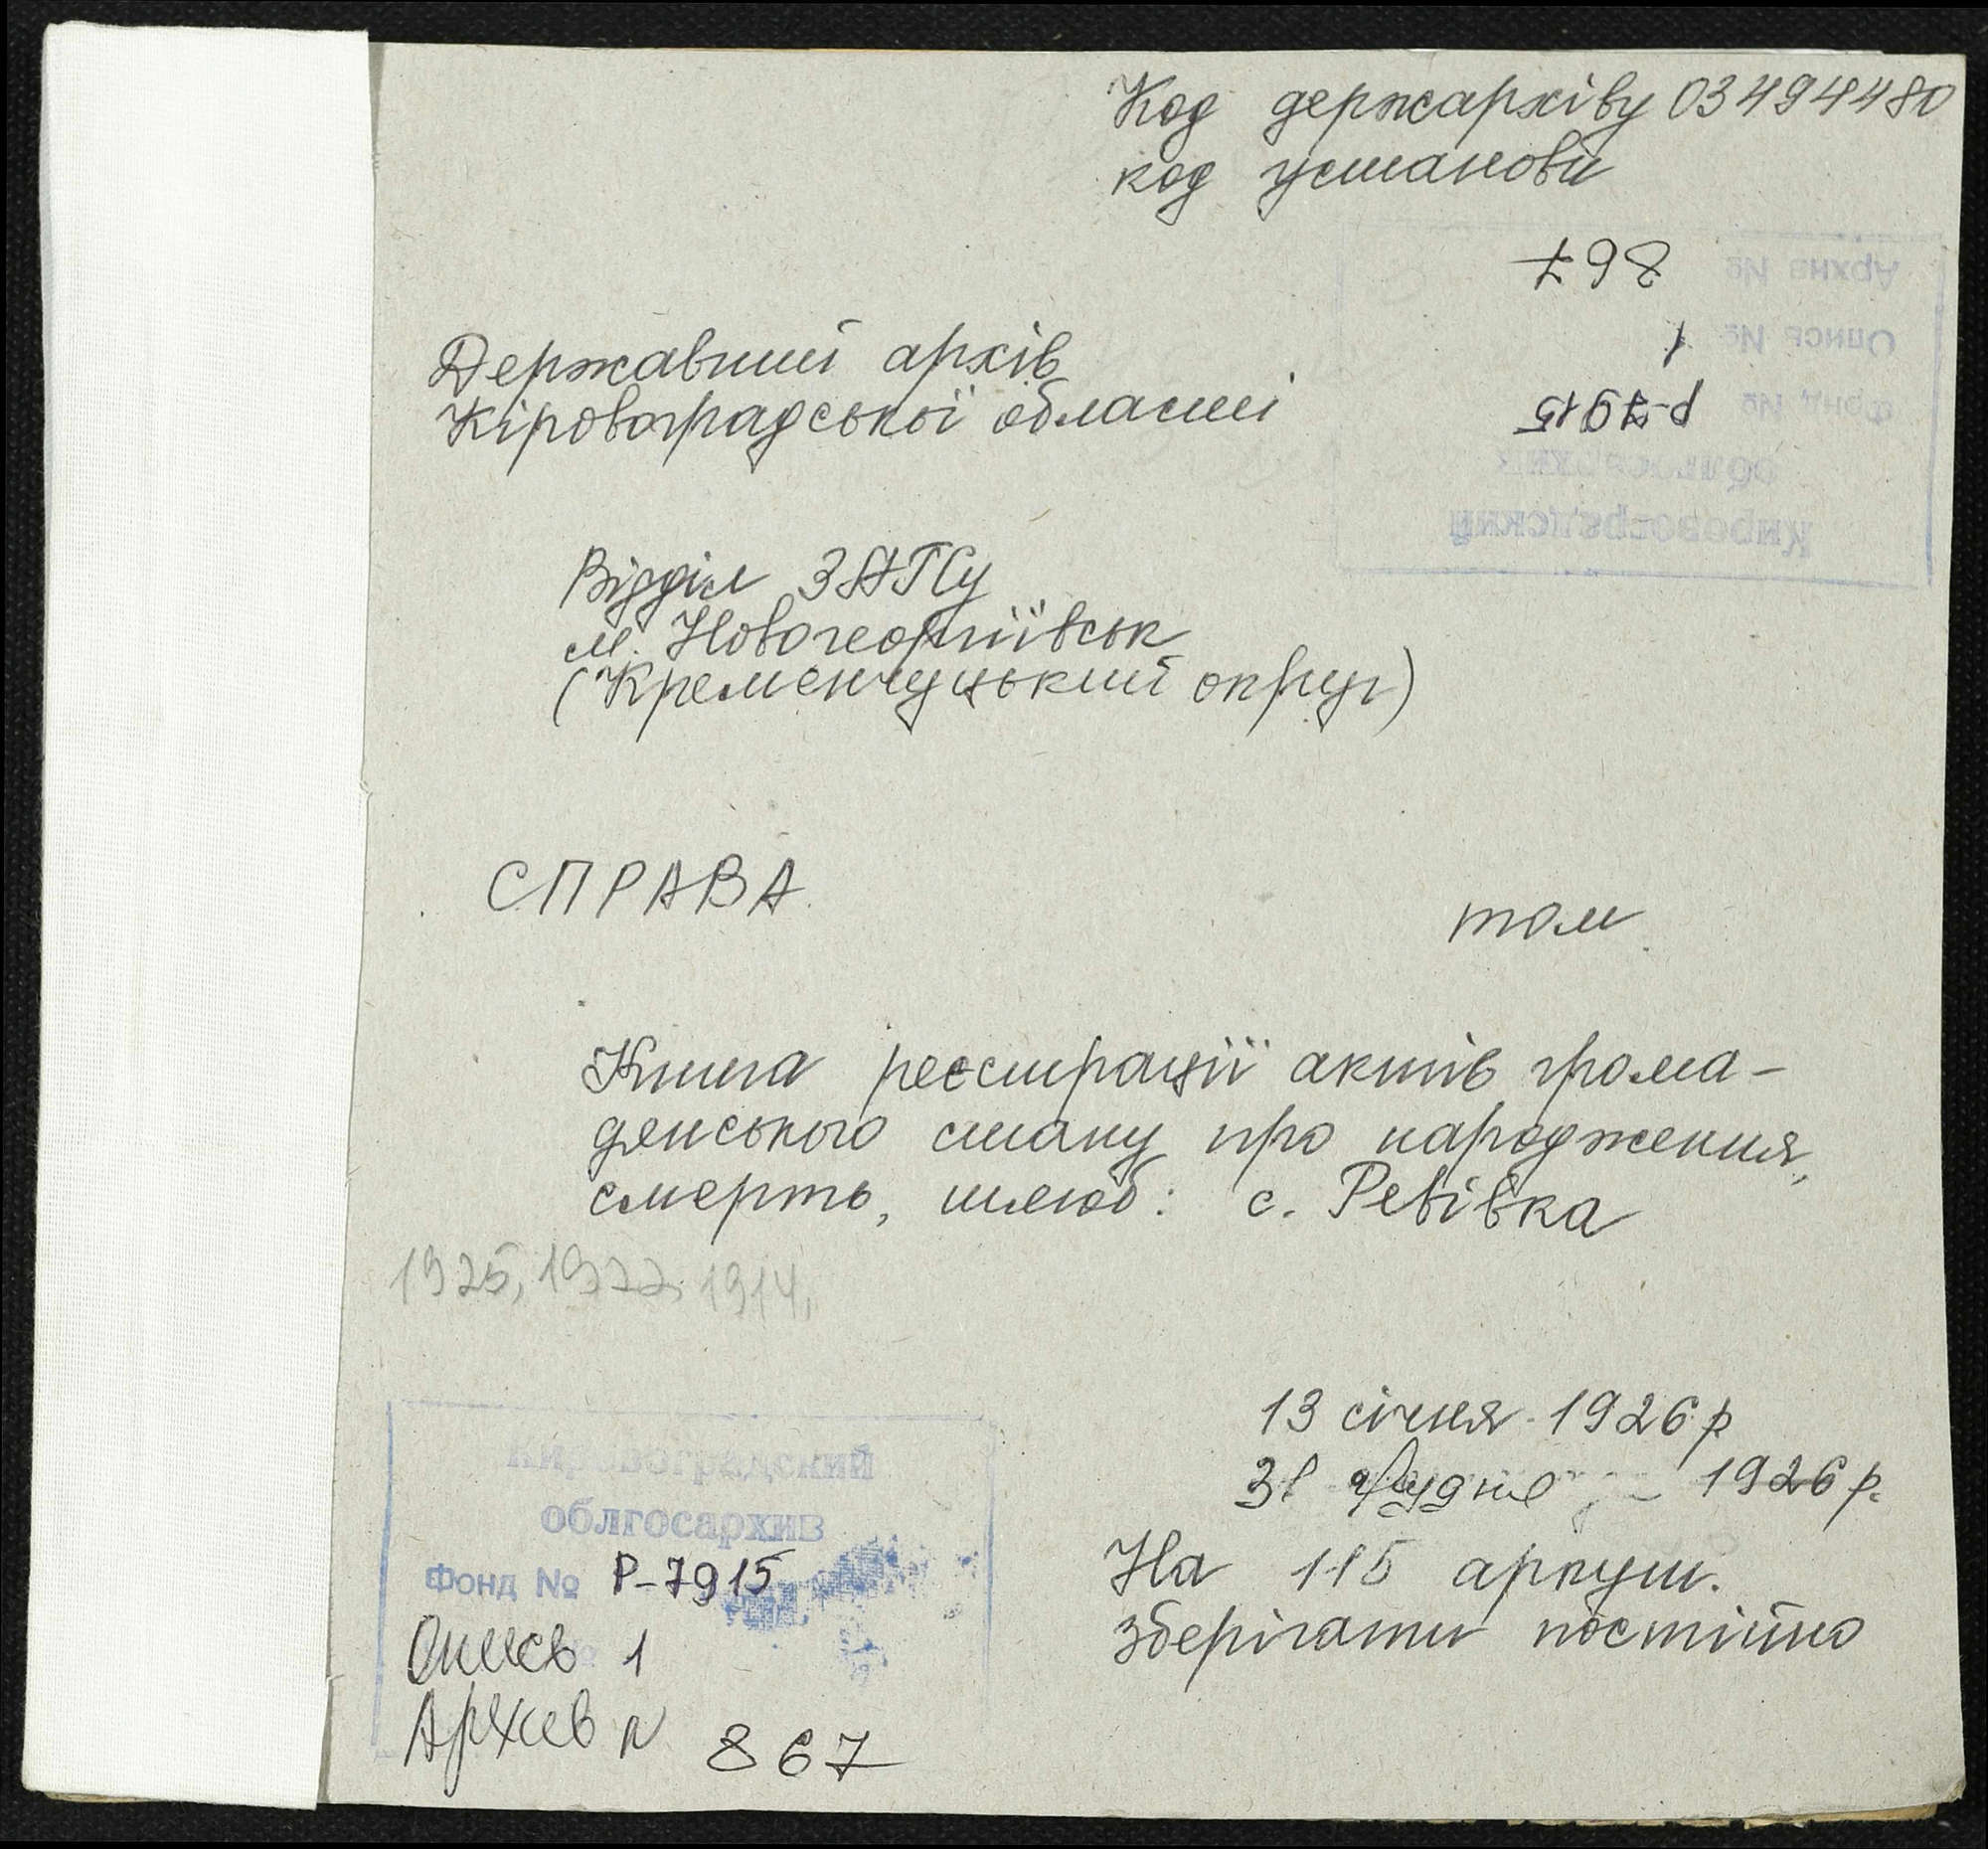 Код держархіву 03494480
код установи
Архив № 867
Опись № 1
Фонд № Р-7915
облгосархив
Кировоградский
Державний архів
Кіровоградської області
Відділ ЗАГСу
м. Новогеоргіївськ
(Кременчуцький округ)
СПРАВА
том
Книга реєстрації актів грома-
дянського стану про народження,
смерть, шлюб: с. Ревівка
1925, 1922, 1914,
13 січня 1926 р
31 грудня 1926 р.
На 115 аркуш.
зберігати постійно
Кировоградский
облгосархив
Фонд № Р-7915
Опись 1
Архив N 867